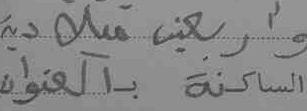 وأربعين ميلادية
الساكنة بالعنوان